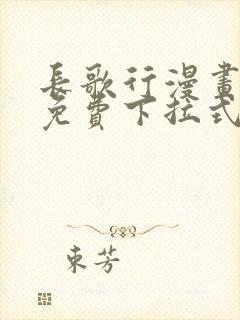 長歌行漫畫
免費下拉式
東芳